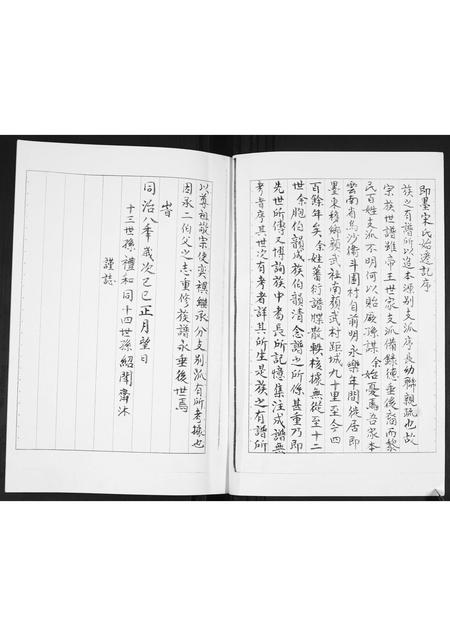 即墨宋氏始遷記序
族之有譜所以追本源別支派序長幼聯親疏也故
宗族世譜雖帝王世家支派備錄德垂後裔而黎
民百姓支派不明何以貽厥孫謀余始憂焉吾家本
雲南省烏沙衛斗園村自前明永樂年間徙居即
墨東穆鄉顏武社南顏武村距城九十里至今四
百餘年矣余姓蕃衍譜牒散軼核據無從至十二
世余胞伯韻成族伯韻清念譜之所係甚重乃即
先世所傳又博詢族中耆長所記憶集注成譜無
考者序其世次有考者詳其所生是族之有譜所
以尊祖敬宗使奕禩繼承分支別派有所考據也
因承二伯父之志重修族譜永垂後世焉
旹
同治八年歲次己巳正月望日
十三世孫禮和同十四世孫紹聞齋沐
謹誌